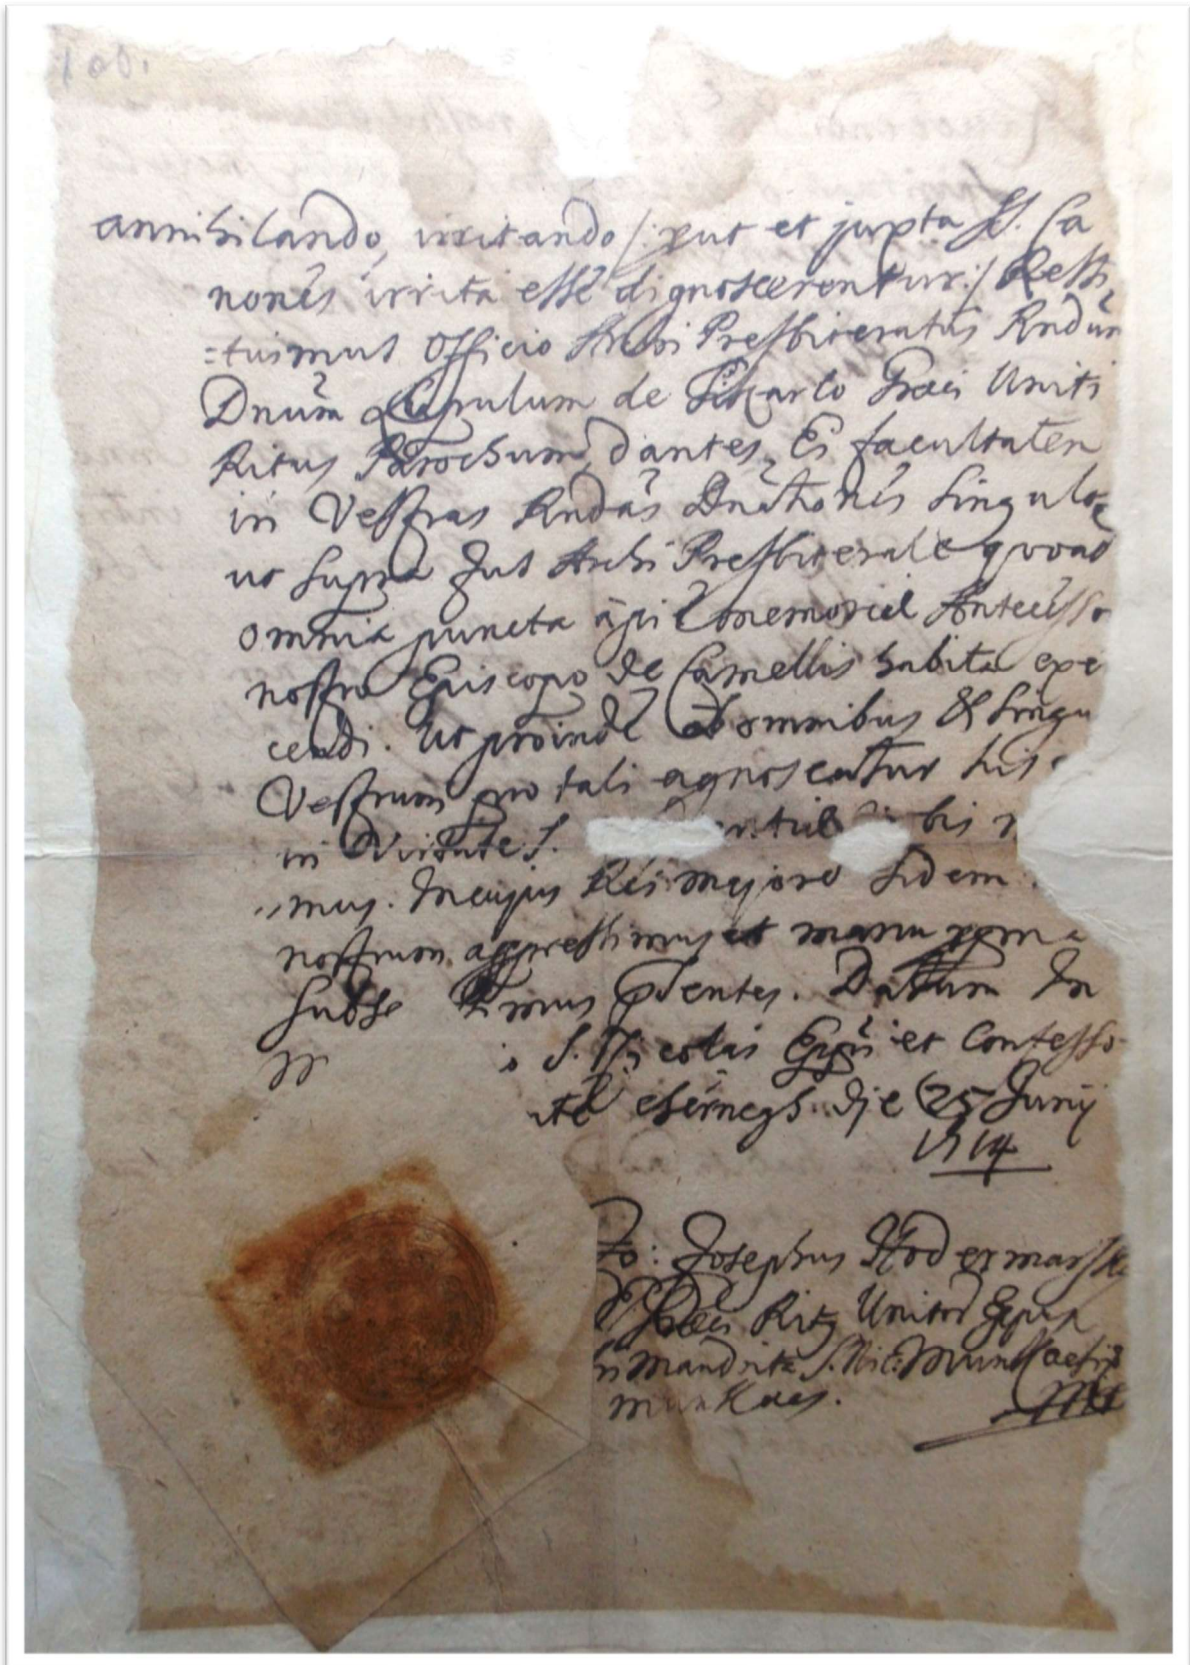 100.
annihilando, irritando /: put et juxta SS. Ca
nones irrita esse dignoscerentur :/ Resti,
=tuimus Officio Archi Presbiteratus Rndum
Dnum Lupulum de Graei Uniti
Ritus Parochum, dantes Ei facultatem
in Vestras Rndas Dnationes singulos
ut supra Jus Archi Presbiterale qvoad
omnia puncta a pie memoriae Antecesso
nostro Episcopo de Camellis habita exe
cendi. Ut proinde ab omnibus & singu
Vestrum pro tali agnoscatur his
in Virtute S. bis
mus. In cujus Rei majore fidem
nostrum appressimus et manu ppria
subsc mus pdentes. Datum In
S. Nicolai Eppi et Confesso
die 25 Junij
1714
Jo: Josephus Hodermarski
Graei Ritq Unitor Eppus
Mandrita S. Nic:
Munkacs.